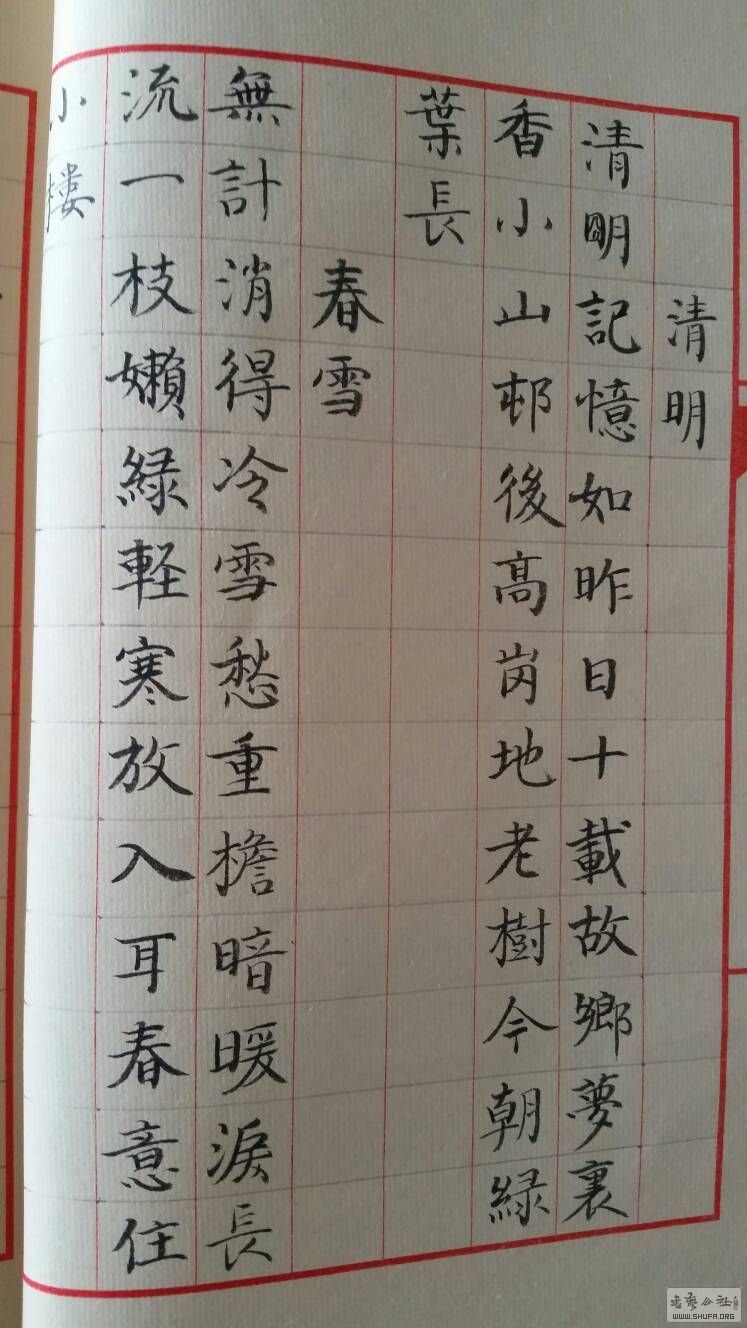 清明
清明記憶如昨日十載故鄉夢裏
香小山邨後高崗地老樹今朝緑
葉長
春雪
無計消得冷雪愁重檐暗暖淚長
流一枝嬾緑軽寒放入耳春意住
小樓
WWW.SHUFA.ORG